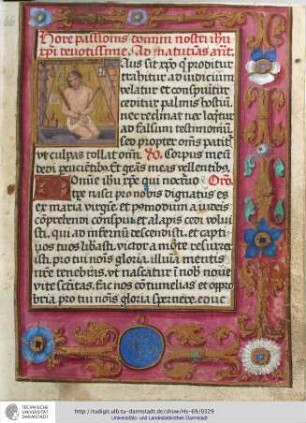 Hore passionis domini nostri ihu
xpi devotissime. Ad matutinas añt.
Aus sit xpo q̃ proditur
trahitur ad iudicium
velatur et conspuitur
ceditur palmis hostiũ,
nec reclamat nec loq̃tur
ad falsum testimoniũ
sed propter om̃s pati
vt culpas tollat oñm Vo. Corpus meũ
dedi peucutientib. Et genas meas vellentib.
Domine ihu xpe qui nocturno Oro.
tpe nasci pro nobis dignatus es
ex maria virgine, et postmodum a iudeis
cõprehendi conspui et alapis cedi volui
sti, qui ad infernũ descendisti, et capti
uos tuos libasti, victor a morte resurrex
isti, pro tui nõis gloria, illuĩa mentis
nr̃e tenebras, vt nascatur ĩ nob noue
vite sc̃itas, fac nos cõtumelias et oppro
bria pro tui nõis gloria spernere, et nuc
TECHNISCHE
UNIVERSITÄT
DARMSTADT
http://tudigit.ulb.tu-darmstadt.de/show/Hs-69/0329
Universitäts- und Landesbibliothek Darmstadt